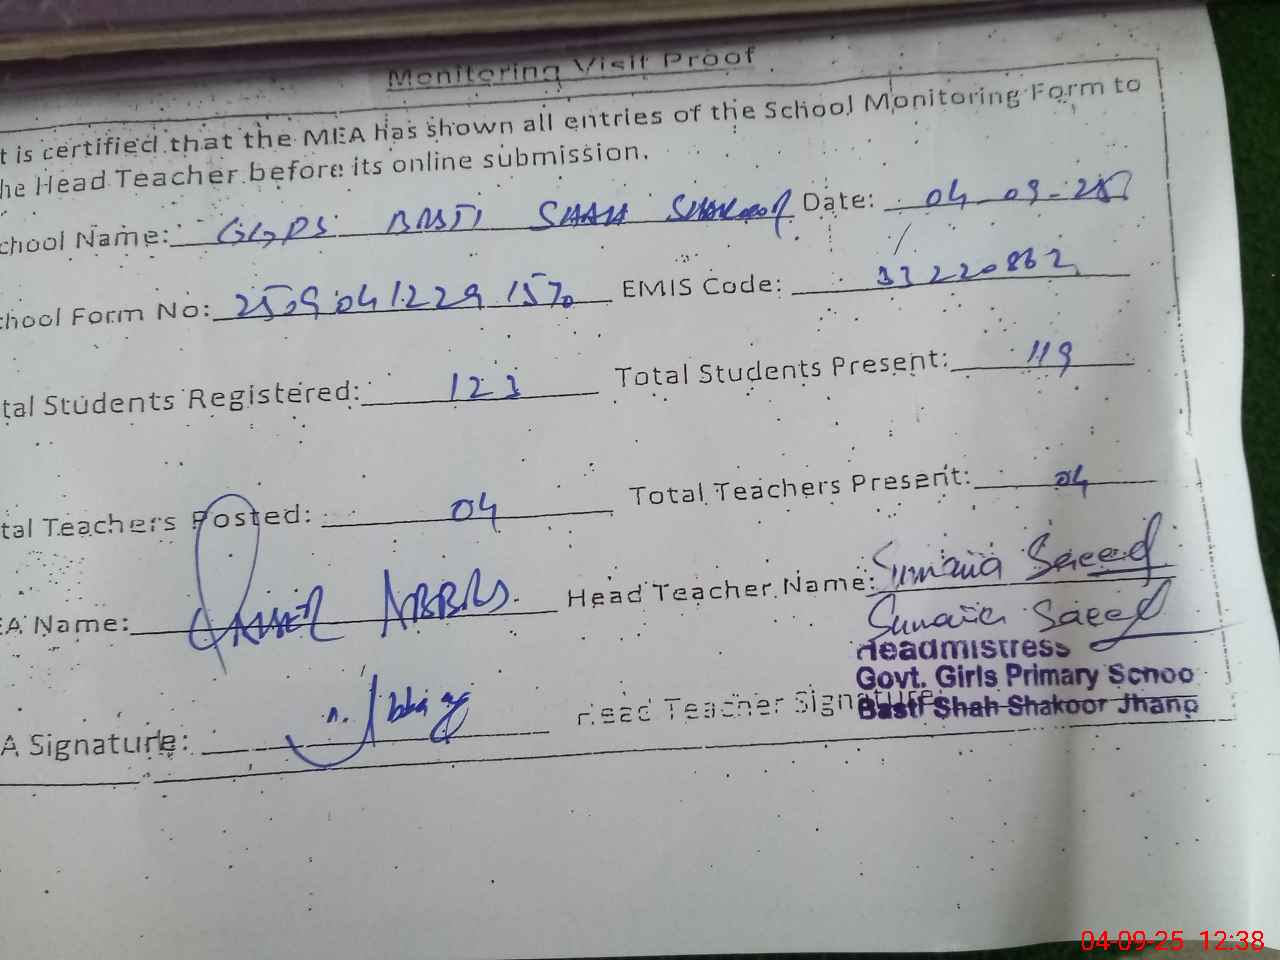 Monitoring Visit Proof
t is certified that the MEA has shown all entries of the School Monitoring Form to
he Head Teacher before its online submission.
chool Name: GGPS BASTI SHAH SHAKOOR Date: 04-09-25
hool Form No: 25090412291570 EMIS Code: 33220862
tal Students Registered: 123 Total Students Present: 119
tal Teachers Posted: 04 Total Teachers Present: 04
EA Name: QAISER ABBAS. Head Teacher Name: Sumaira Saeed
Sumaira Saeed
Headmistress
Govt. Girls Primary Schoo
A Signature: Head Teacher Signature
Basti Shah Shakoor Jhang
04-09-25 12:38